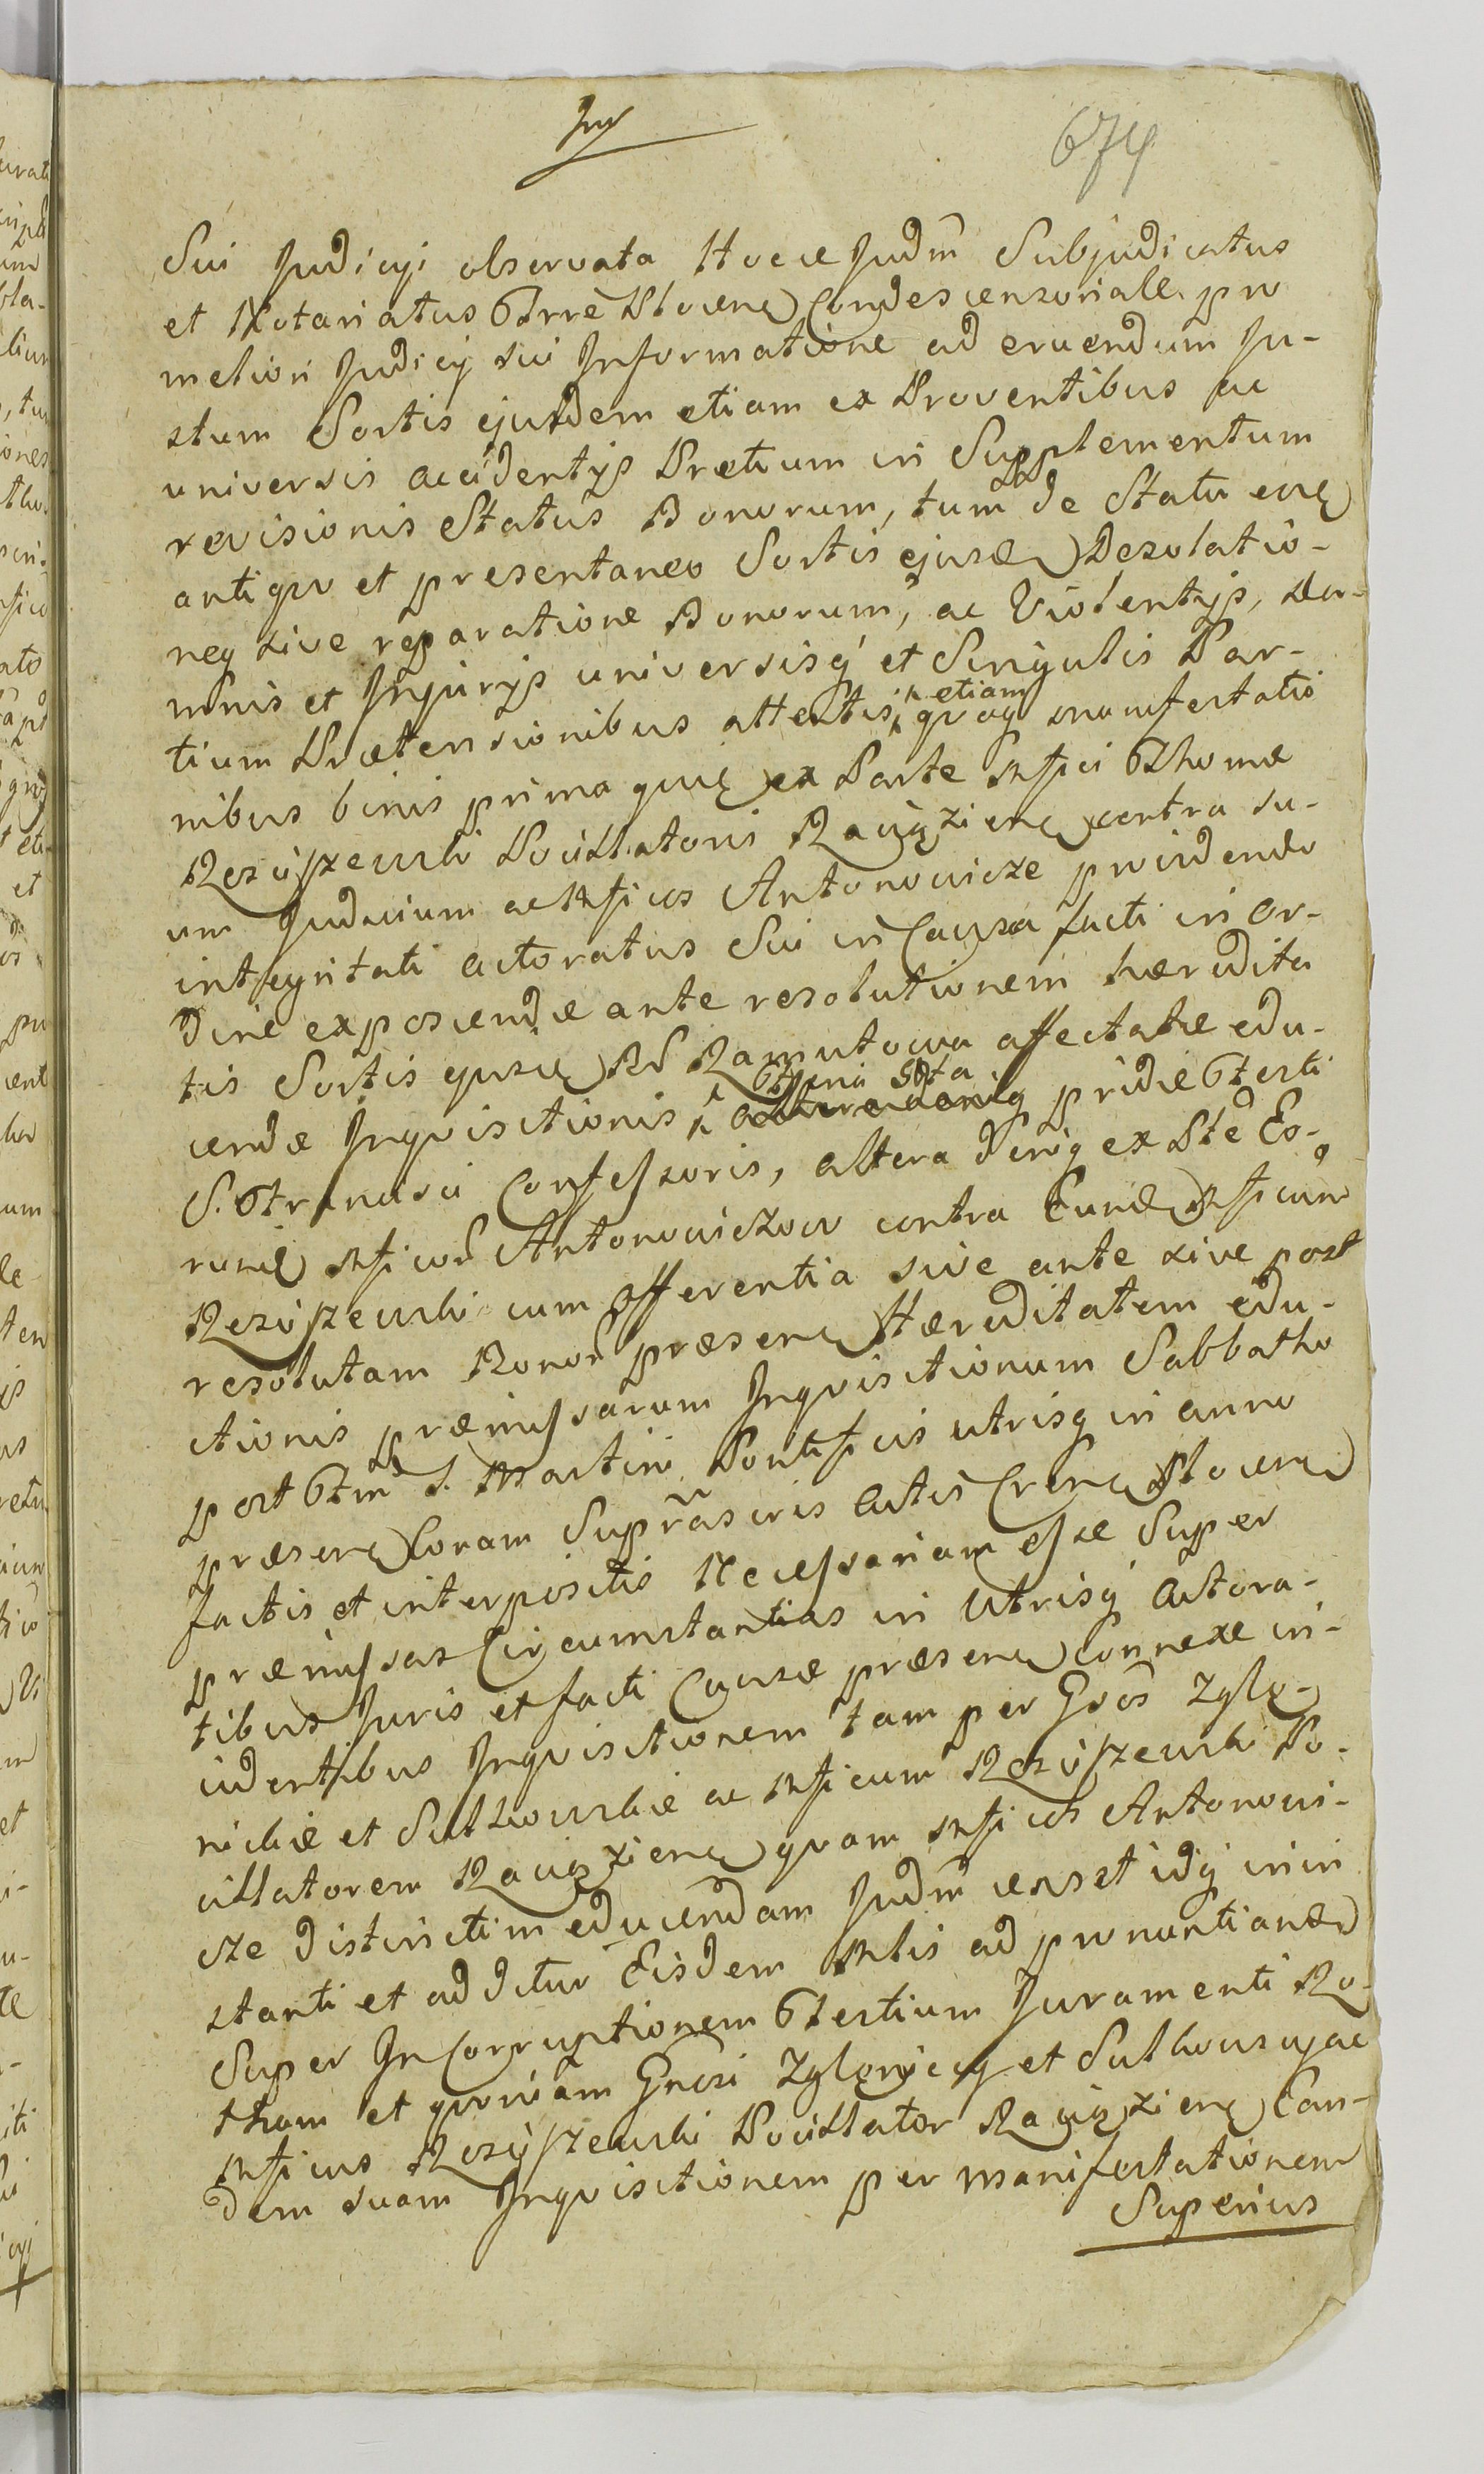 674
Sui Judicii observata Hocce Judm Subjudicatus
et Notariatus Trre Plocens Condescensoriale pro
meliori Judicij sui Informatione ad eruendum Ju-
stum Sortis ejusdem etiam ex Proventibus ac
universis accidentijs Pretium in Supplementum
revisionis Status Bonorum, tum de Statu
antiquo et presentaneo Sortis ejusd Dezolatio-
ne sive reparatione Bonorum, ac Violentijs, Da-
mnis et Injurijs universisq et Singulis Par-
tium Prætensionibus attentis, etiam manifestatio
nibus binis prima ex Parte Mfici Thomæ
Rosciszewski Pocillatoris Raciąziens contra su-
um Judicium ac Mficos Antonowicze providendo
integritati actoratus Sui in Causa facti in or-
dine exposcendæ ante resolutionem hæredita
tis Sortis Ramutowa affectatæ edu-
cendæ Inquisitionis, pridie Festi
S. Confessoris, altera ex Pte Eo-
rund Mficor Antonowiczow contra Eund Mficum
Rosciszewski cum offerentia sive ante sive post
resolutam Bonor præsens Hæreditatem edu-
ctionis præmissarum Inquisitionum Sabbatho
post Ftm S. Martini Pontificis utrisq in anno
præsen Coram Suprascris Actis Cren Plocens
factis et interpositis Necessariam esse Super
præmissas Circumstantias in Utrisq Actora-
tibus Juris et facti Causæ præsens Connexe in-
cidentibus Inquisitionem tam per Gsos Zglo-
nickie et Sulkowskie ac Mficum Rosciszewski Po-
cillatorem Raciąziens quam Mficos Antonowi-
cze distinctim educendam Judm censet idq in in
stanti et additur Eisdem Mlis ad pronuntiand
Super InCorruptionem Testium Juramenti Ro-
tham et quoniam Gnosi Zglenicy et Sulkowscy ac
Mficus Rosciszewski Pocillator Raciąziens Ean-
dem suam Inquisitionem per manifestationem
Superius